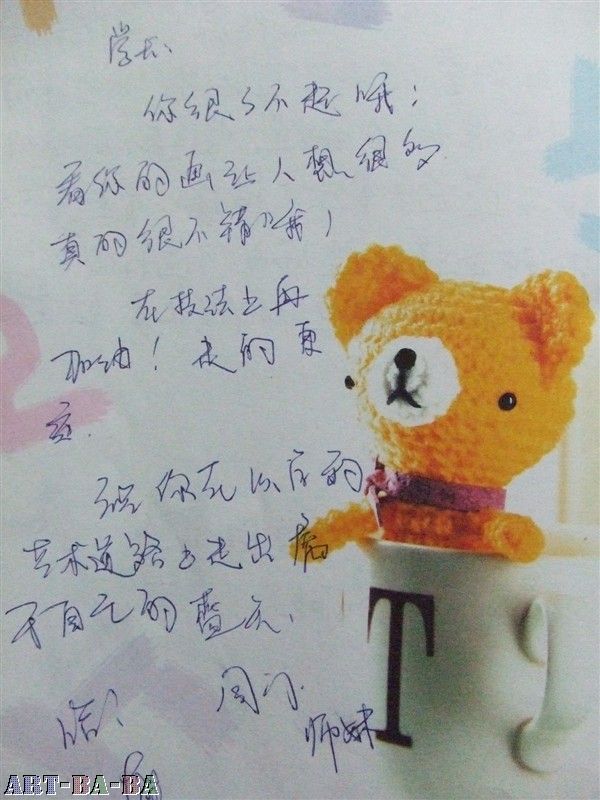 学长、
你很了不起哦！
看你的画让人想很多
真的很不错哦！
在技法上再
加油！走的更
远.
祝你在以后的
艺术道路上走出属
于自己的蓝天.
同门
师妹
T
ART-BA-BA